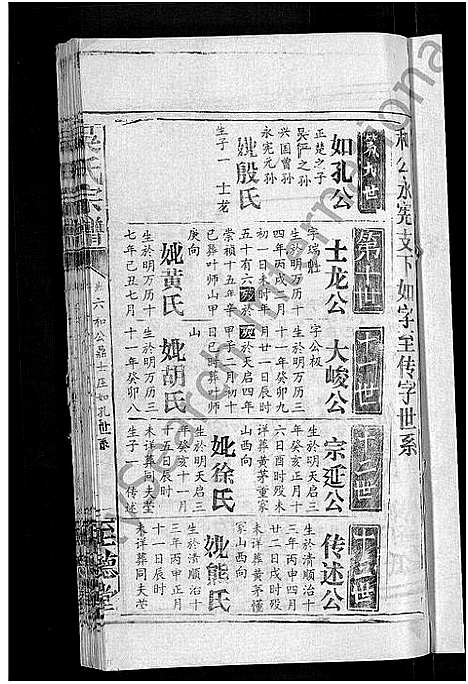 和公永宪支下如字至传字世系
第九世
如孔公
正楚之子
吴俨之孙
兴国曾孙
永宪元孙
妣殷氏
生子一 士龙
第十世
士龙公
字瑞魁
生於明万历十
四年丙戌二月
初一日未时年
五十有六殁於
崇祯十五年辛
巳葬叶师山甲
庚向
妣黄氏
生於明万历十
七年己丑七月
十一世
大峻公
字公极
生於明万历三
十一年癸卯九
月廿一日辰时
殁於天启四年
甲子二月初十
日巳时葬叶师
山
妣胡氏
生於明万历三
十一年癸卯八
十二世
宗延公
生於明天启三
年癸亥正月十
六日酉时殁未
详葬黄茅重家
山西向
妣徐氏
生於明天启三
年癸亥十一月
十五日辰时
未详葬同夫茔
生子一 传述
十三世
传述公
生於清顺治十
三年丙申四月
廿二日戌时殁
未详葬黄茅槿
家山西向
妣熊氏
生於清顺治十
三年丙申正月
十一日辰时
未详葬同夫茔
吴氏宗谱
卷六和公鼎士压如孔世系
至德堂